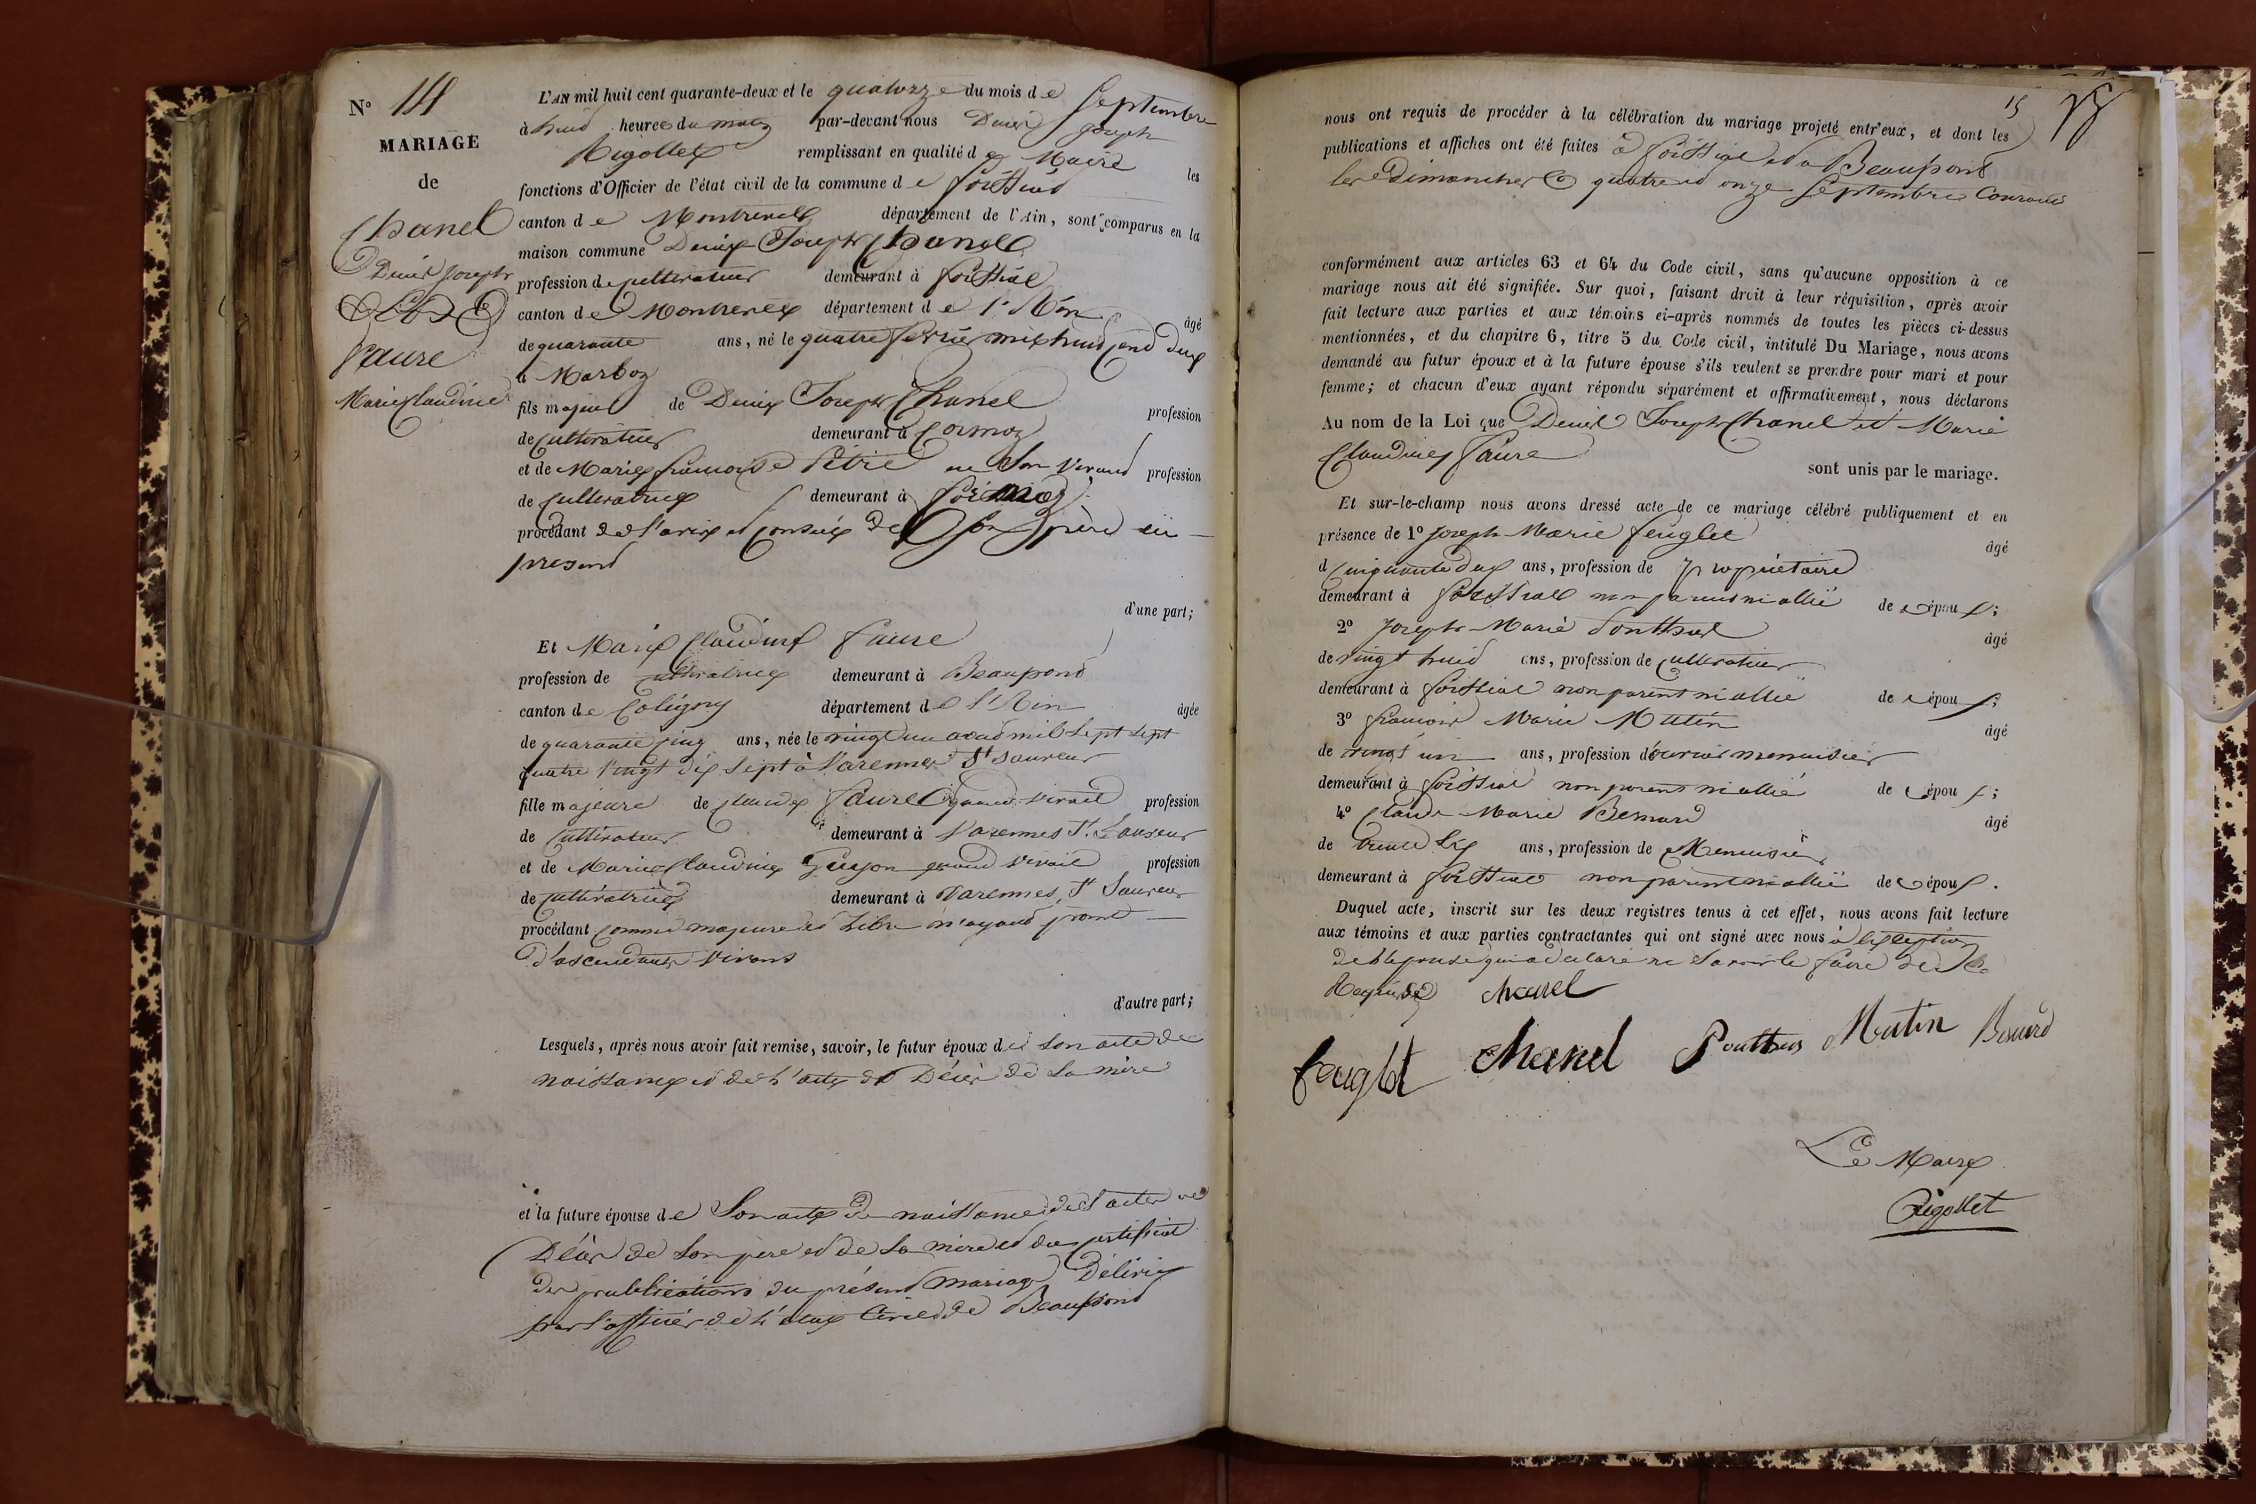 N° 14
MARIAGE
de
Chanel
Denis Joseph
& de
Faure
Marie Claudine
L'AN mil huit cent quarante-deux et le quatorze du mois de Septembre
à huit heures du matin par-devant nous Denis Joseph
Rigollet remplissant en qualité de Maire les
fonctions d'Officier de l'état civil de la commune de foissiat
canton de Montrevel département de l'Ain, sont comparus en la
maison commune Denis Joseph Chanel
profession de cultivateur demeurant à foissiat
canton de Montrevel département de l'Ain âgé
de quarante ans, né le quatre février mil huit cent deux
à Marboz
fils majeur de Denis Joseph Chanel profession
de cultivateur demeurant à Cormoz
et de Marie françoise Pétrie en son vivant profession
de cultivatrice demeurant à
procédant de l'avis et conseil de son père ici
présent
d'une part;
Et Marie Claudine faure
profession de cultivatrice demeurant à Beaupont
canton de Coligny département de l'Ain âgée
de quarante cinq ans, née le vingt un août mil sept sept
quatre vingt dix sept à Varennes St Sauveur
fille majeure de Claude faure quand vivait profession
de cultivateur demeurant à Varennes St Sauveur
et de Marie Claudine Guyon quand vivait profession
de cultivatrice demeurant à Varennes St Sauveur
procédant comme majeure et libre n'ayant point
d'ascendants vivants
d'autre part;
Lesquels, après nous avoir fait remise, savoir, le futur époux de son acte de
naissance et de l'acte de Décès de sa mère
et la future épouse de son acte de naissance de l'acte de
Décès de son père et de sa mère et du certificat
des publications du présent mariage Délivré
par l'officier de l'état civil de Beaupont
15
nous ont requis de procéder à la célébration du mariage projeté entr'eux, et dont les
publications et affiches ont été faites à foissiat et à Beaupont
les Dimanches quatre et onze Septembre Courant
conformément aux articles 63 et 64 du Code civil, sans qu'aucune opposition à ce
mariage nous ait été signifiée. Sur quoi, faisant droit à leur réquisition, après avoir
fait lecture aux parties et aux témoins ci-après nommés de toutes les pièces ci-dessus
mentionnées, et du chapitre 6, titre 5 du Code civil, intitulé Du Mariage, nous avons
demandé au futur époux et à la future épouse s'ils veulent se prendre pour mari et pour
femme; et chacun d'eux ayant répondu séparément et affirmativement, nous déclarons
Au nom de la Loi que Denis Joseph Chanel et Marie
Claudine faure
sont unis par le mariage.
Et sur-le-champ nous avons dressé acte de ce mariage célébré publiquement et en
présence de 1° Joseph Marie feuglet âgé
d cinquante deux ans, profession de propriétaire
demeurant à foissiat non parent ni allié de l'époux;
2° Joseph Marie Pouthus âgé
de vingt huit ans, profession de cultivateur
demeurant à foissiat non parent ni allié de l'époux;
3° françois Marie Mutin âgé
de vingt un ans, profession d'ouvrier menuisier
demeurant à foissiat non parent ni allié de l'époux;
4° Claude Marie Besnard âgé
de trente six ans, profession de Menuisier
demeurant à foissiat non parent ni allié de l'époux.
Duquel acte, inscrit sur les deux registres tenus à cet effet, nous avons fait lecture
aux témoins et aux parties contractantes qui ont signé avec nous à l'exception
de l'épouse qui a déclaré ne savoir le faire de ce
Requise chanel
feuglet chanel Pouthus Mutin Besnard
Le Maire
Rigollet